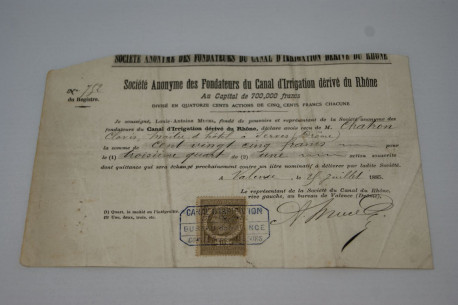 SOCIÉTÉ ANONYME DES FONDATEURS DU CANAL D'IRRIGATION DÉRIVÉ DU RHÔNE
No 752
du Registre.
Société Anonyme des Fondateurs du Canal d'Irrigation dérivé du Rhône
Au Capital de 700,000 francs
DIVISÉ EN QUATORZE CENTS ACTIONS DE CINQ CENTS FRANCS CHACUNE
Je soussigné, Louis-Antoine fondé de pouvoirs et représentant de la Société anonyme des
fondateurs du Canal d'Irrigation dérivé du Rhône, déclare avoir reçu de M. Chatron
Clovis, maître d'hôtel à (Drôme)
la somme de cent vingt cinq francs pour
le (1) troisième quart de (2) une action nouvelle
dont quittance qui sera échangée prochainement contre un titre nominatif à délivrer par ladite Société.
A Valence, le 25 Juillet
Le représentant de la Société du Canal du Rhône,
rive gauche, au bureau de Valence (Drôme),
(1) Quart, la moitié ou l'intégralité.
(2) Une, deux, trois, etc.
CANAL D'IRRIGATION